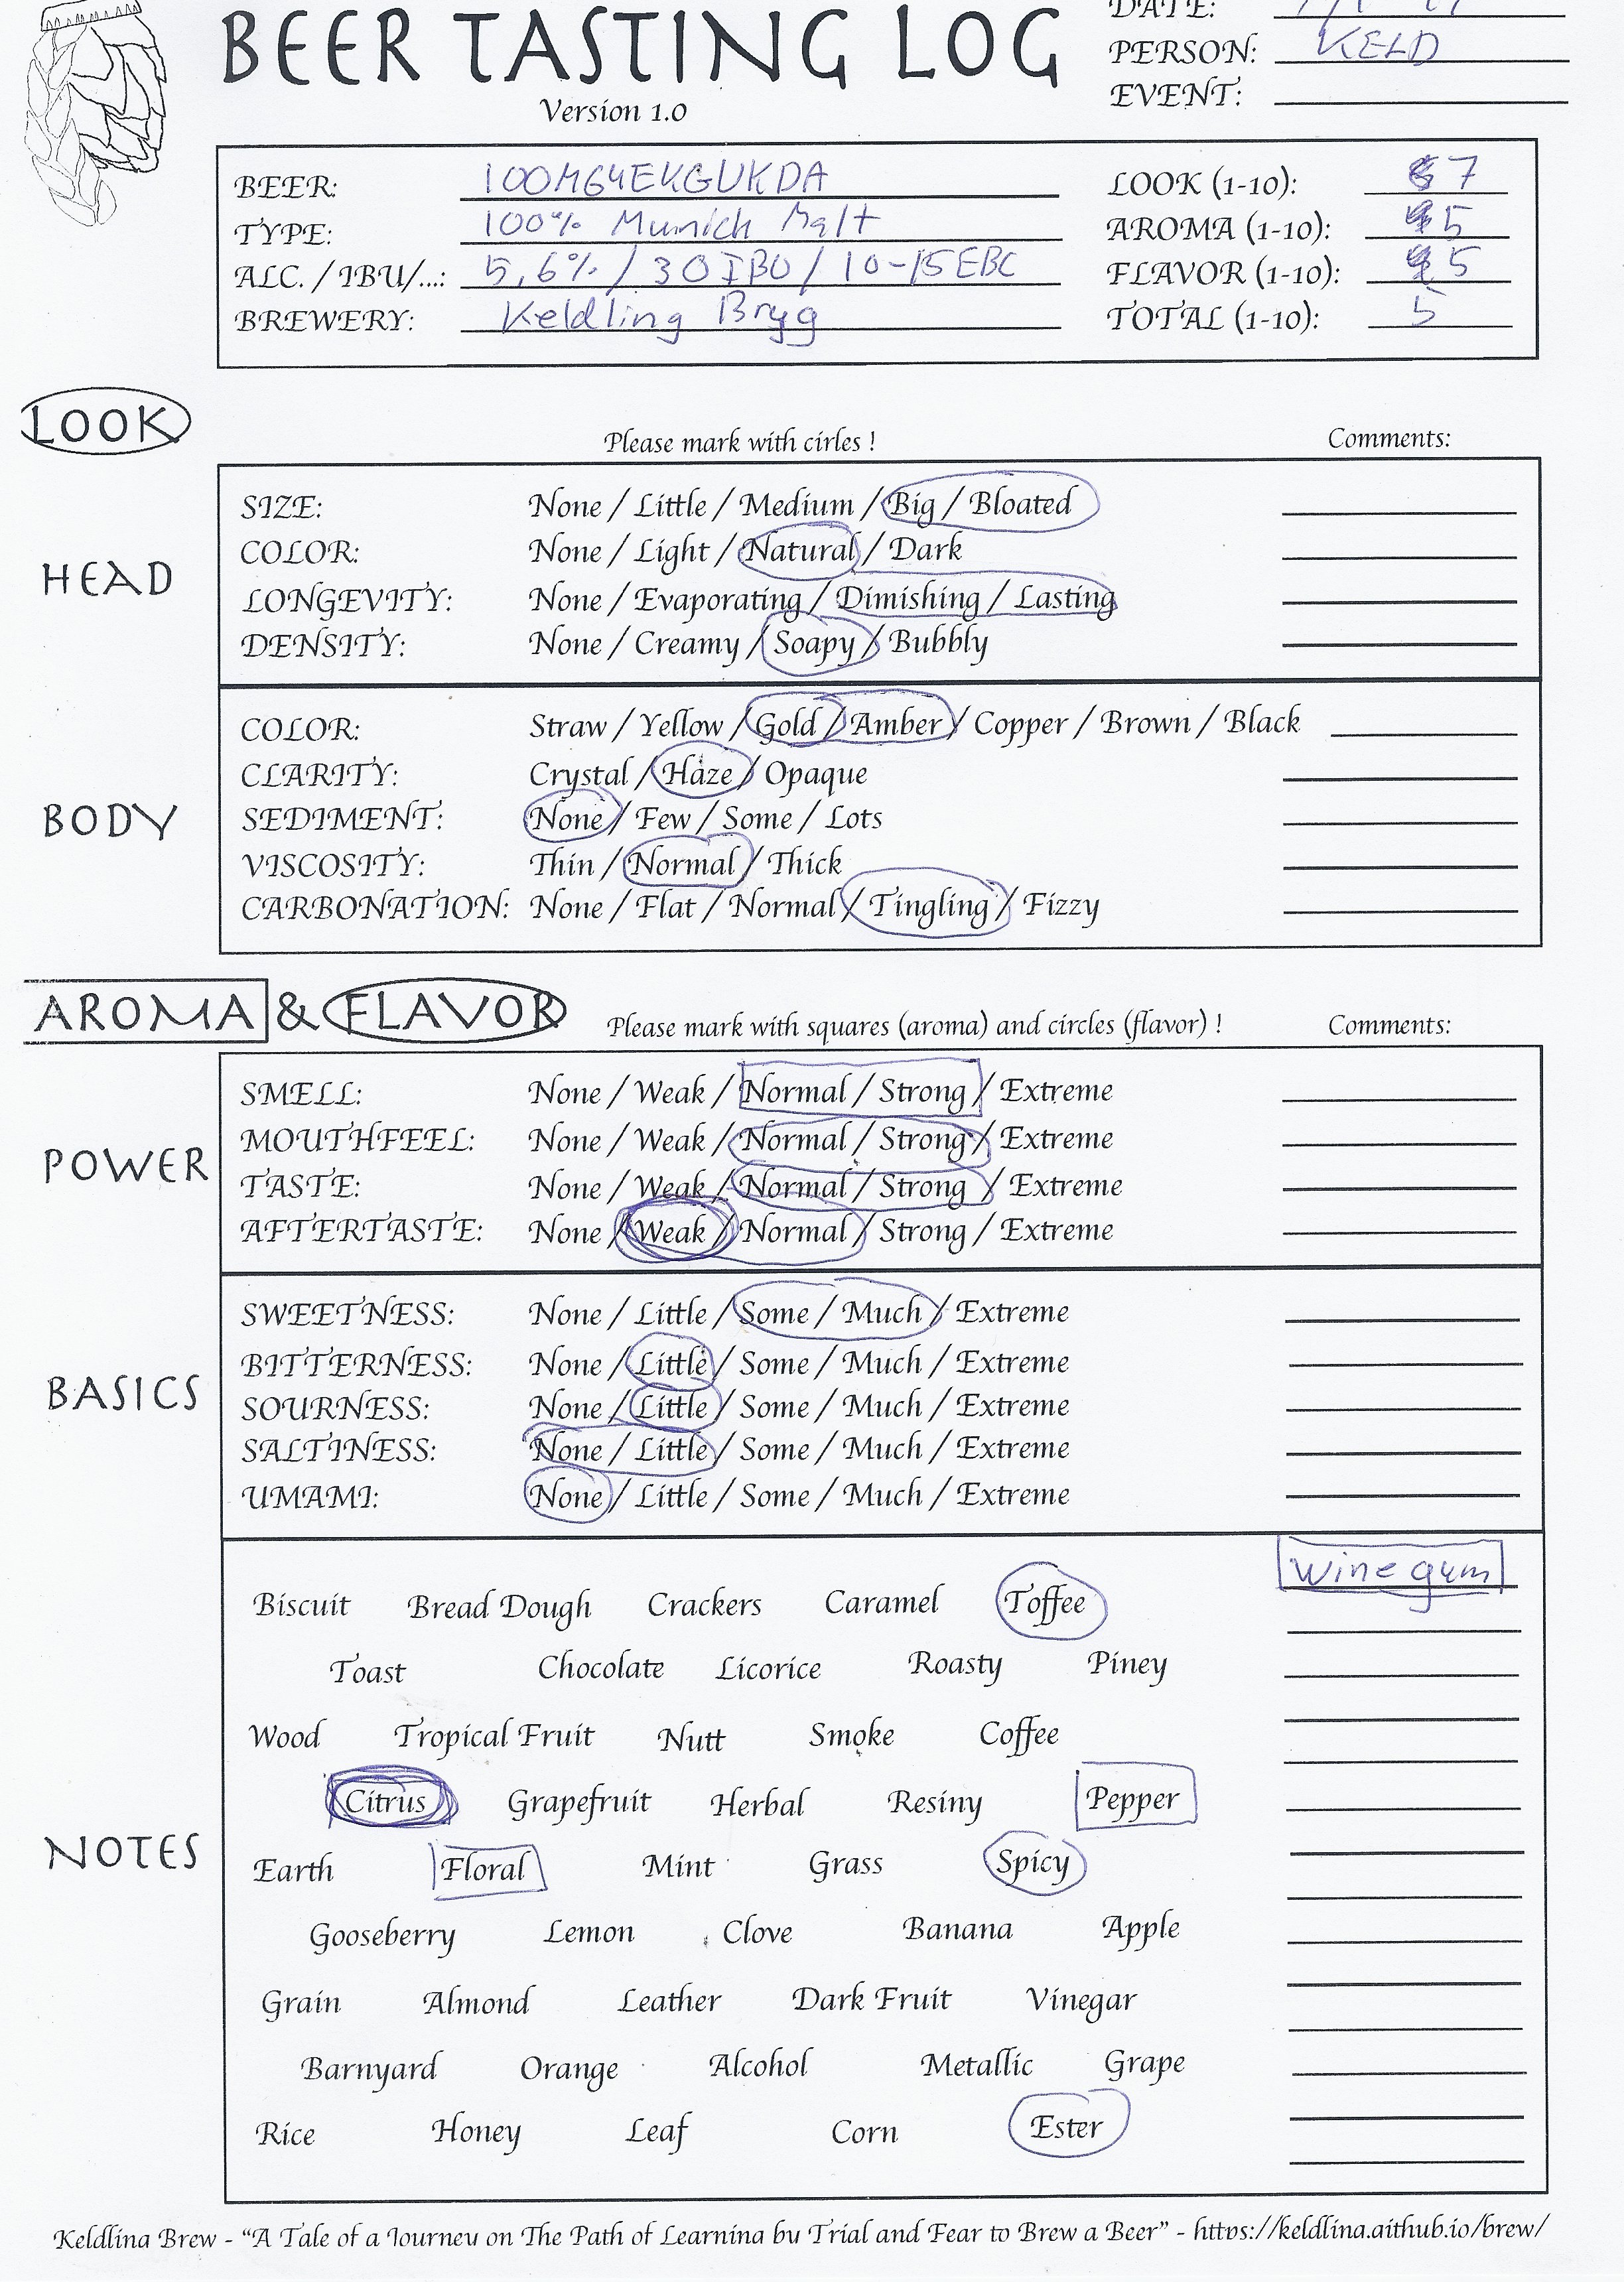 BEER TASTING LOG
Version 1.0
DATE:
PERSON: KELD
EVENT:
BEER: 100M64EKGUKDA
TYPE: 100% Munich Malt
ALC. / IBU/...: 5,6% / 30 IBU / 10-15 EBC
BREWERY: Keldling Bryg
LOOK (1-10): 7
AROMA (1-10): 5
FLAVOR (1-10): 5
TOTAL (1-10): 5
LOOK
Please mark with cirles !
Comments:
HEAD
SIZE: None / Little / Medium / Big / Bloated
COLOR: None / Light / Natural / Dark
LONGEVITY: None / Evaporating / Dimishing / Lasting
DENSITY: None / Creamy / Soapy / Bubbly
BODY
COLOR: Straw / Yellow / Gold / Amber / Copper / Brown / Black
CLARITY: Crystal / Haze / Opaque
SEDIMENT: None / Few / Some / Lots
VISCOSITY: Thin / Normal / Thick
CARBONATION: None / Flat / Normal / Tingling / Fizzy
AROMA & FLAVOR
Please mark with squares (aroma) and circles (flavor) !
Comments:
POWER
SMELL: None / Weak / Normal / Strong / Extreme
MOUTHFEEL: None / Weak / Normal / Strong / Extreme
TASTE: None / Weak / Normal / Strong / Extreme
AFTERTASTE: None / Weak / Normal / Strong / Extreme
BASICS
SWEETNESS: None / Little / Some / Much / Extreme
BITTERNESS: None / Little / Some / Much / Extreme
SOURNESS: None / Little / Some / Much / Extreme
SALTINESS: None / Little / Some / Much / Extreme
UMAMI: None / Little / Some / Much / Extreme
NOTES
wine gum
Biscuit Bread Dough Crackers Caramel Toffee
Toast Chocolate Licorice Roasty Piney
Wood Tropical Fruit Nutt Smoke Coffee
Citrus Grapefruit Herbal Resiny Pepper
Earth Floral Mint Grass Spicy
Gooseberry Lemon Clove Banana Apple
Grain Almond Leather Dark Fruit Vinegar
Barnyard Orange Alcohol Metallic Grape
Rice Honey Leaf Corn Ester
Keldling Brew - "A Tale of a Journey on The Path of Learning by Trial and Fear to Brew a Beer" - https://keldling.github.io/brew/